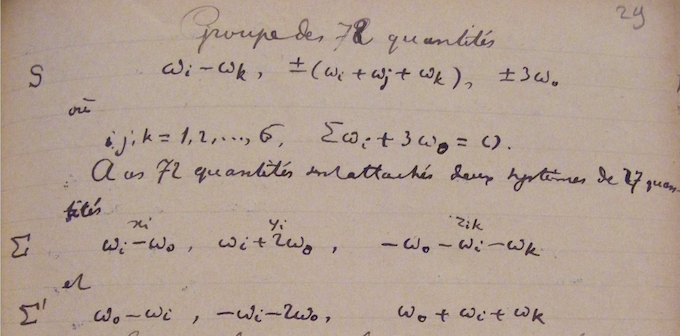 29
Groupe des 72 quantités
S ωi − ωk, ±(ωi + ωj + ωk), ±3ω₀
où
i, j, k = 1, 2, ..., 6, Σωi + 3ω₀ = 0.
A ces 72 quantités sont attachés deux systèmes de 27 quan-
tités
xi yi zik
Σ ωi − ω₀, ωi + 2ω₀, −ω₀ − ωi − ωk
et
Σ' ω₀ − ωi, −ωi − 2ω₀, ω₀ + ωi + ωk